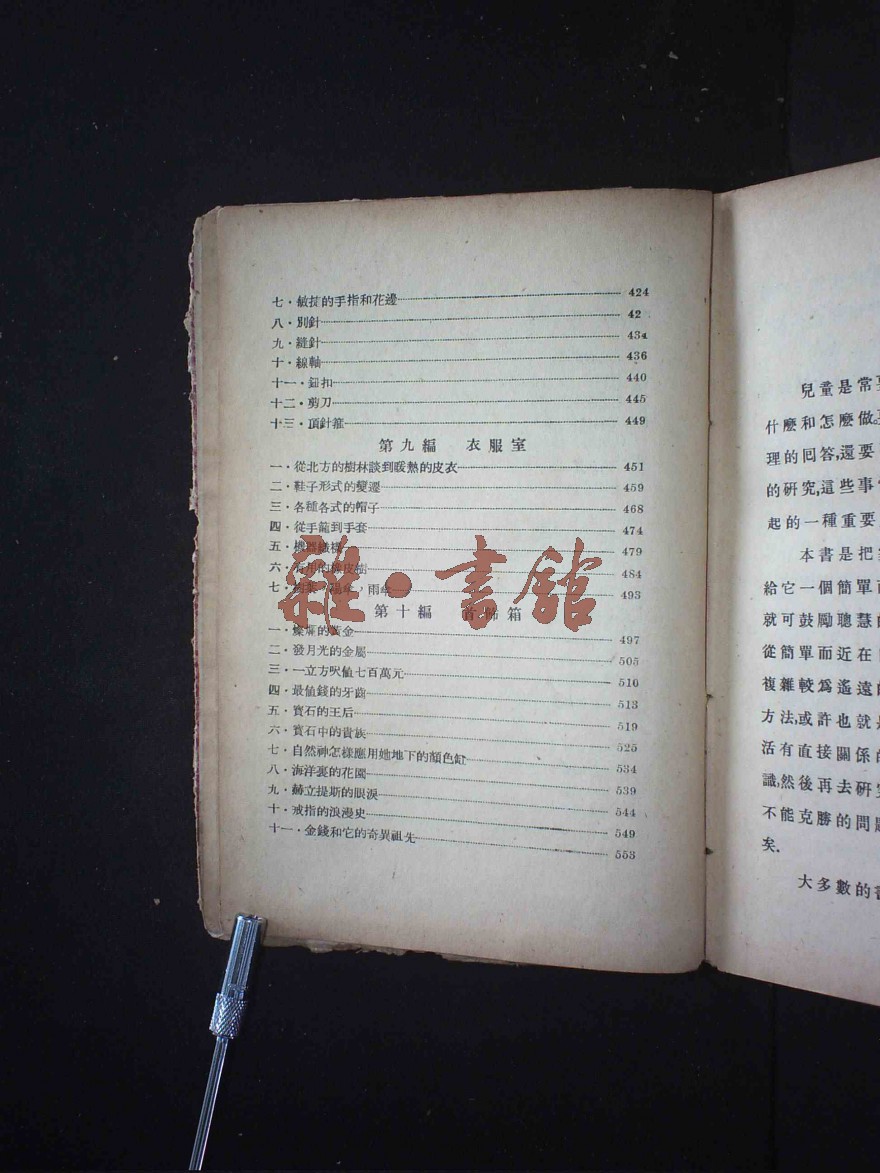 七·敏捷的手指和花邊 424
八·別針 42
九·縫針 434
十·線軸 436
十一·鈕扣 440
十二·剪刀 445
十三·頂針箍 449
第九編 衣服室
一·從北方的樹林談到暖熱的皮衣 451
二·鞋子形式的變遷 459
三·各種各式的帽子 468
四·從手籠到手套 474
五·機器織襪 479
六·有用的橡皮樹 484
七·陽傘,雨傘 493
第十編 首飾箱
一·燦爛的黃金 497
二·發月光的金屬 505
三·一立方呎值七百萬元 510
四·最值錢的牙齒 513
五·寳石的王后 519
六·寳石中的貴族 525
七·自然神怎樣應用她地下的顏色缸 534
八·海洋裏的花園 539
九·赫立提斯的眼淚 544
十·戒指的浪漫史 549
十一·金錢和它的奇異祖先 553
雜·書館
兒童是常
什麽和怎麽做
理的囘答,還要
的研究,這些事
起的一種重要
本書是把
給它一個簡單
就可鼓勵聰慧
從簡單而近在
複雜較爲遙遠
方法,或許也就
活有直接關係的
識,然後再去研究
不能克勝的問題
矣.
大多數的